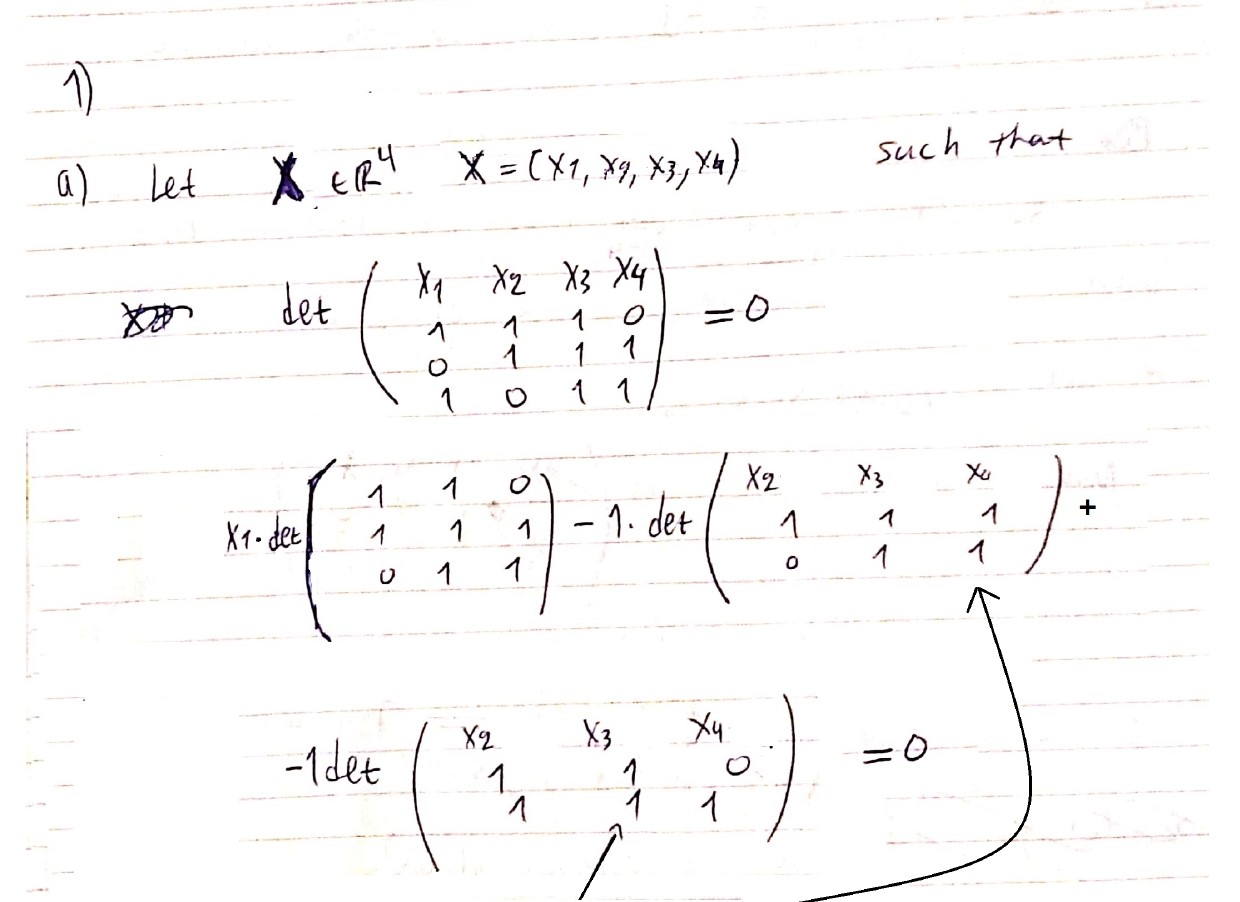 1)
a) Let X ∈ ℝ⁴ X = (x1, x2, x3, x4) such that
det ( x1 x2 x3 x4 ) = 0
1 1 1 0
0 1 1 1
1 0 1 1
x1·det ( 1 1 0 ) - 1·det ( x2 x3 x4 ) +
1 1 1 1 1 1
0 1 1 0 1 1
-1det ( x2 x3 x4 ) = 0
1 1 0
1 1 1